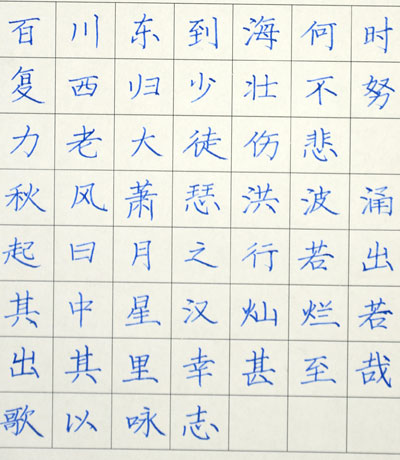 百川东到海何时
复西归少壮不努
力老大徒伤悲
秋风萧瑟洪波涌
起日月之行若出
其中星汉灿烂若
出其里幸甚至哉
歌以咏志